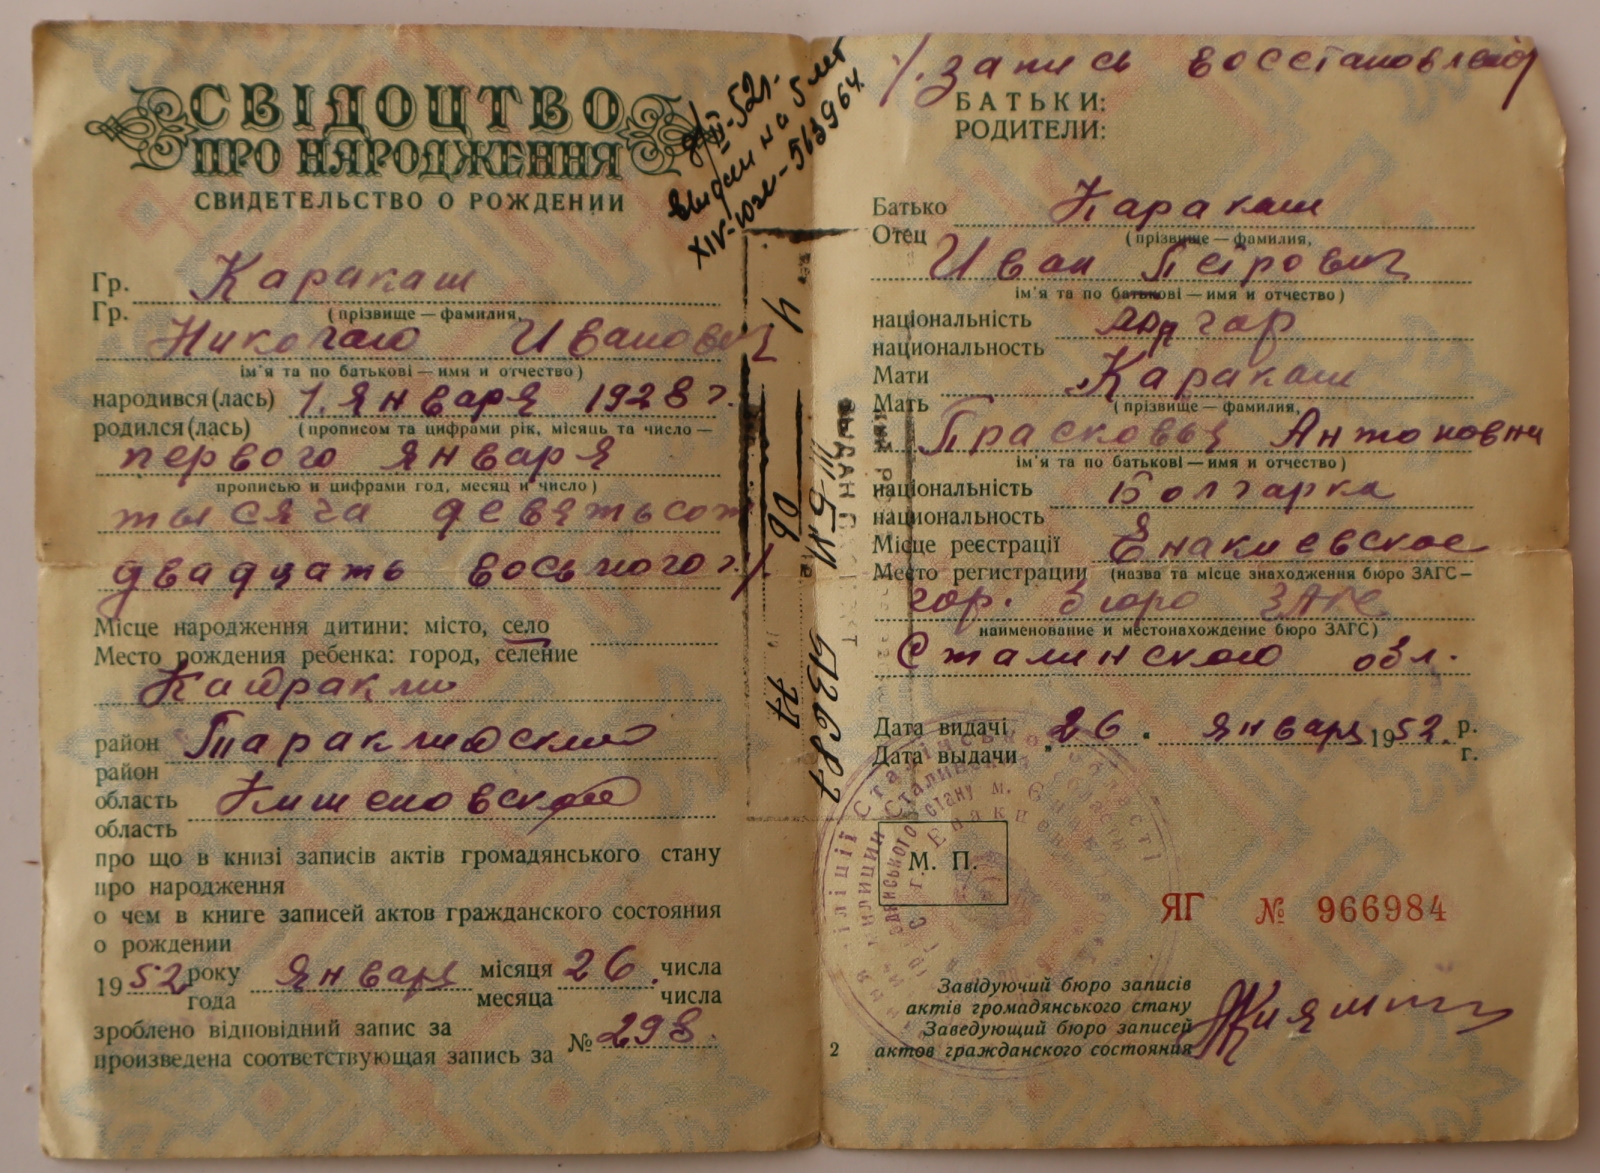 СВІДОЦТВО
ПРО НАРОДЖЕННЯ
СВИДЕТЕЛЬСТВО О РОЖДЕНИИ
Гр. Каракаш
Гр.
(прізвище — фамилия,
Николаю Иванович
ім'я та по батькові — имя и отчество)
народився (лась) 1. Января 1928 г.
родился (лась) (прописом та цифрами рік, місяць та число —
первого Января
прописью и цифрами год, месяц и число)
тысяча девятьсот
двадцать восьмого г.
Місце народження дитини: місто, село
Место рождения ребенка: город, селение
район Тараклийский
район
область
область
про що в книзі записів актів громадянського стану
про народження
о чем в книге записей актов гражданского состояния
о рождении
1952 року Января місяця 26. числа
года месяца числа
зроблено відповідний запис за
произведена соответствующая запись за № 298.
выдан на 5 лет
XIV-ЮЖ-563964
запись восстановлена
БАТЬКИ:
РОДИТЕЛИ:
Батько Каракаш
Отец (прізвище — фамилия,
Иван Петрович
ім'я та по батькові — имя и отчество)
національність
национальность
Мати Каракаш
Мать (прізвище — фамилия,
Прасковья Антоновна
ім'я та по батькові — имя и отчество)
національність Болгарка
национальность
Місце реєстрації Енакиевское
Место регистрации (назва та місце знаходження бюро ЗАГС —
гор. бюро ЗАГС
наименование и местонахождение бюро ЗАГС)
Сталинского обл.
Дата видачі „26". Января 1952. р.
Дата выдачи г.
М. П.
ЯГ № 966984
Завідуючий бюро записів
актів громадянського стану
Заведующий бюро записей
актов гражданского состояния
2